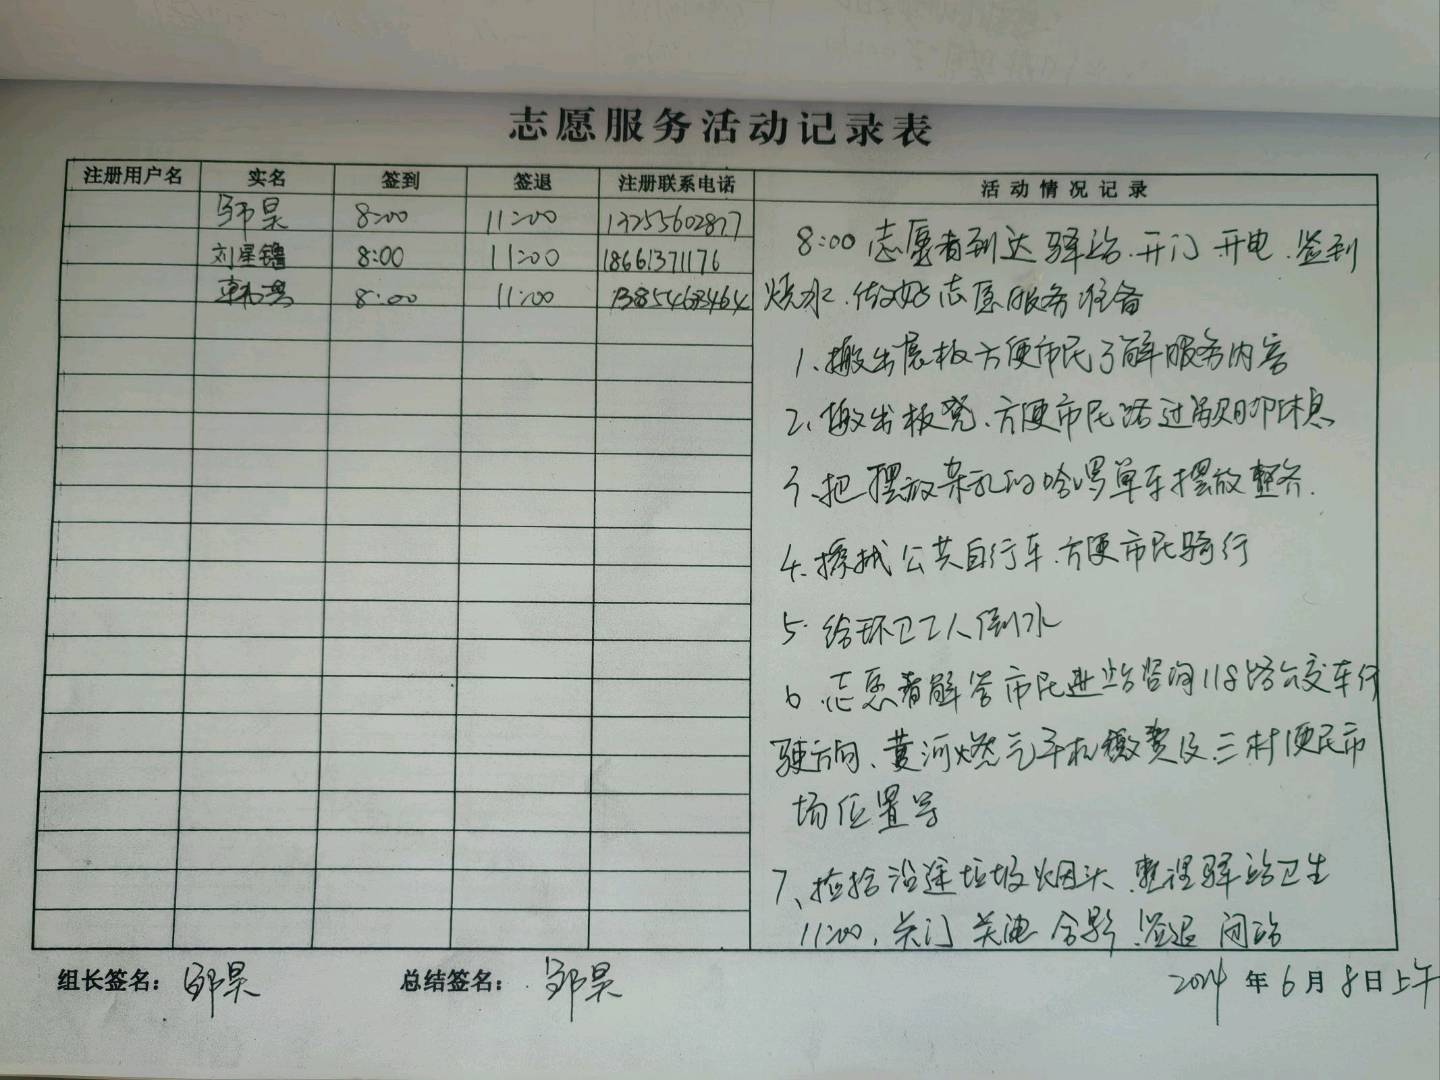 志愿服务活动记录表
注册用户名 实名 签到 签退 注册联系电话 活动情况记录
邹昊 8:00 11:00 13255602877
刘星 8:00 11:00 18661371176
韩 8:00 11:00 13854683464
8:00 志愿者到达驿站、开门 开电、签到
烧水、做好志愿服务准备
1、搬出展板方便市民了解服务内容
2、搬出板凳、方便市民路过歇脚休息
3、把摆放杂乱的哈啰单车摆放整齐.
4、擦拭公共自行车、方便市民骑行
5· 给环卫工人倒水
6 、志愿者解答市民进站咨询118路公交车行
驶方向、黄河燃气手机缴费及三村便民市
场位置等
7、捡拾沿途垃圾烟头 整理驿站卫生
11:00、关门 关电 合影 签退 闭站
组长签名：邹昊 总结签名：邹昊 2024 年 6 月 8 日上午